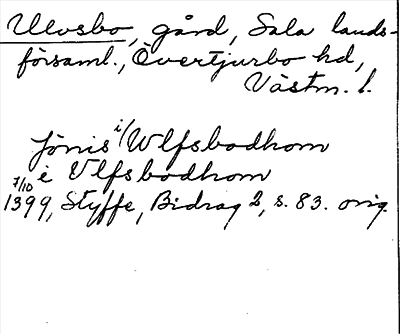 Ulvsbo, gård, Sala lands-
församl., Övertjurbo hd,
Västm. l.
Jönis i/Wlfsbodhom
i Vlfsbodhom
7/10
1399, Styffe, Bidrag 2, s. 83. orig.